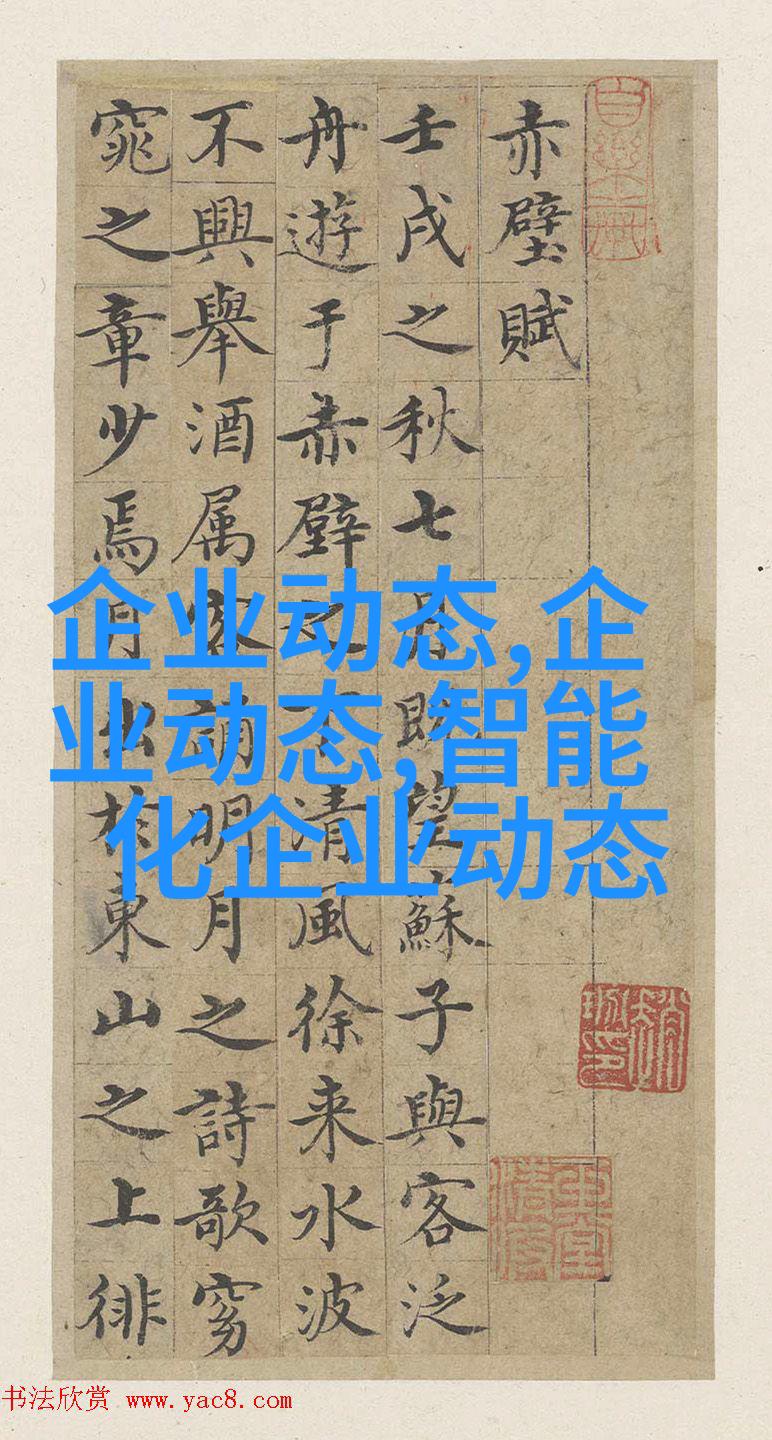 赤壁賦
壬戌之秋七月既望蘇子與客泛
舟遊于赤壁之下清風徐来水波
不興舉酒属客誦明月之詩歌窈
窕之章少焉月出於東山之上徘
企业动态,企
业动态,智能
化企业动态
书法欣赏 www.yac8.com